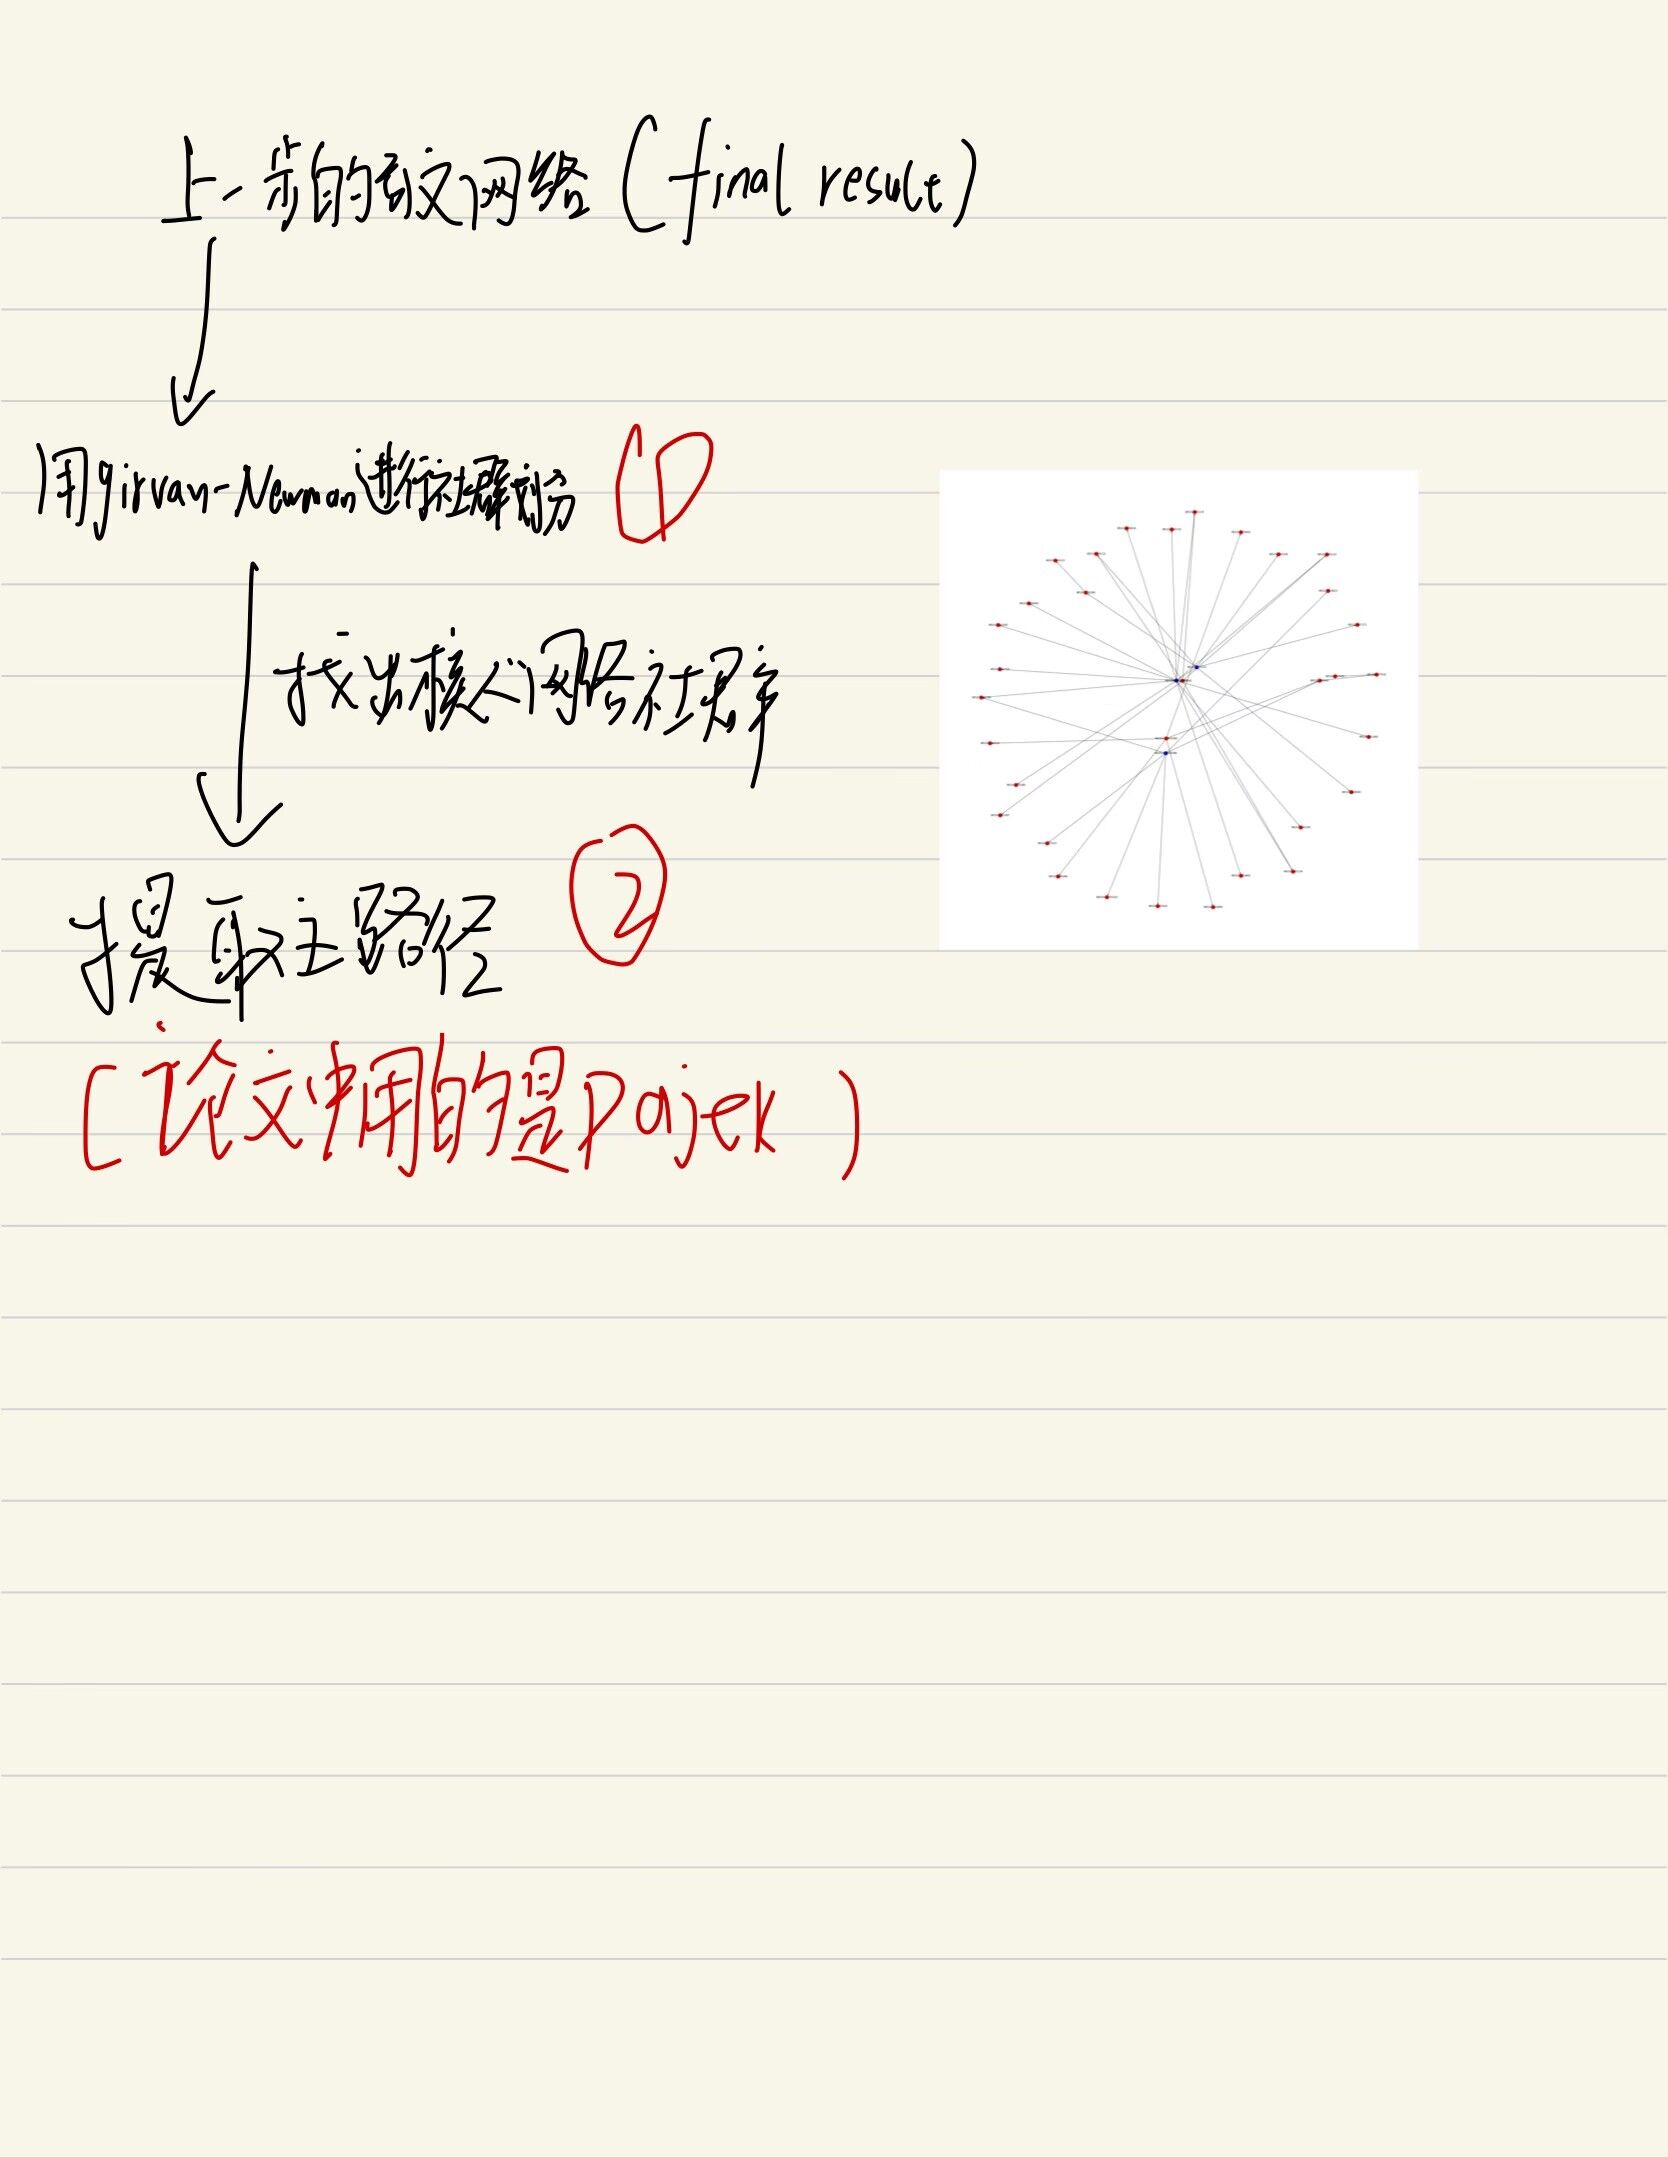 上一步的引文网络(final result)
用girvan-Newman进行社群划分 ①
找出核心网络社群
提取主路径 ②
(论文中用的是Pajek)